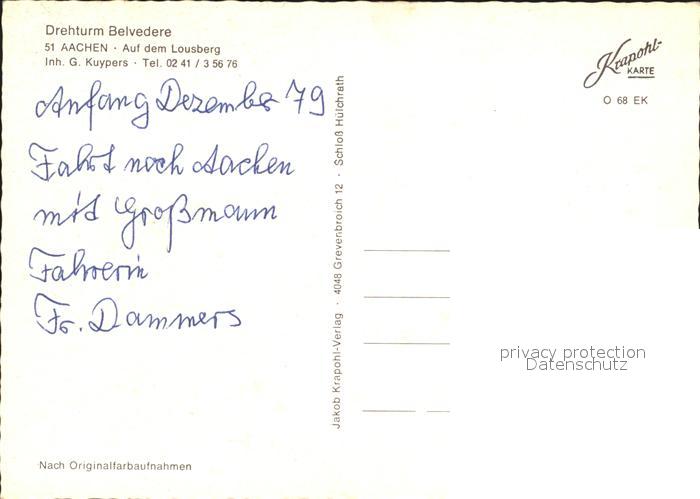 Drehturm Belvedere
51 AACHEN · Auf dem Lousberg
Inh. G. Kuypers · Tel. 02 41 / 3 56 76
Anfang Dezember 79
Fahrt nach Aachen
mit Großmann
Fahrerin
Fr. Dammers
Nach Originalfarbaufnahmen
Jakob Krapohl-Verlag · 4048 Grevenbroich 12 · Schloß Hülchrath
Krapohl-
KARTE
O 68 EK
privacy protection
Datenschutz